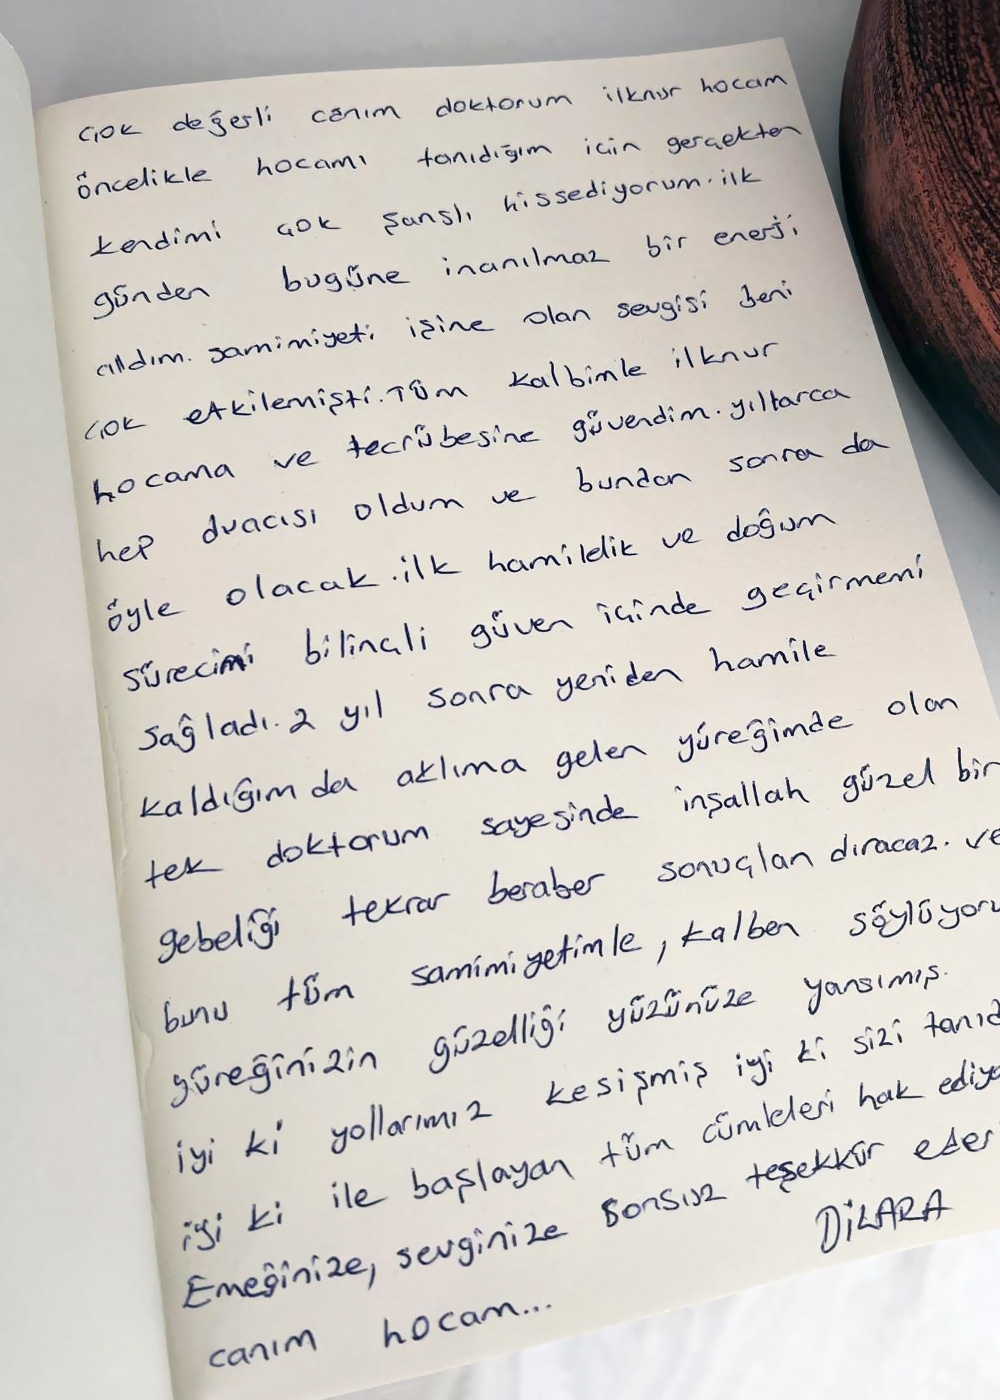 çok değerli canım doktorum ilknur hocam
öncelikle hocamı tanıdığım için gerçekten
kendimi çok şanslı hissediyorum. ilk
günden bugüne inanılmaz bir enerji
aldım. samimiyeti işine olan sevgisi beni
çok etkilemişti. Tüm kalbimle ilknur
hocama ve tecrübesine güvendim. yıllarca
hep duacısı oldum ve bundan sonra da
öyle olacak. ilk hamilelik ve doğum
sürecimi bilinçli güven içinde geçirmemi
sağladı. 2 yıl sonra yeniden hamile
kaldığımda aklıma gelen yüreğimde olan
tek doktorum sayesinde inşallah güzel bir
gebeliği tekrar beraber sonuçlandıracaz. ve
bunu tüm samimiyetimle, kalben söylüyoru
yüreğinizin güzelliği yüzünüze yansımış.
iyi ki yollarımız kesişmiş iyi ki sizi tanıd
iyi ki ile başlayan tüm cümleleri hak ediyo
Emeğinize, sevginize sonsuz teşekkür eder
canım hocam...
DİLARA